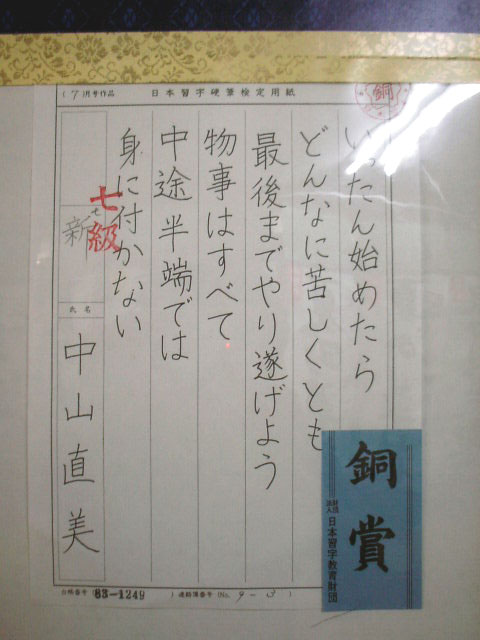 (7)月号作品 日本習字硬筆検定用紙
銅
いったん始めたら
どんなに苦しくとも
最後までやり遂げよう
物事はすべて
中途半端では
身に付かない
新
七級
氏名
中山直美
銅賞
財団法人 日本習字教育財団
台帳番号 (83-1249) 連絡簿番号 (No.